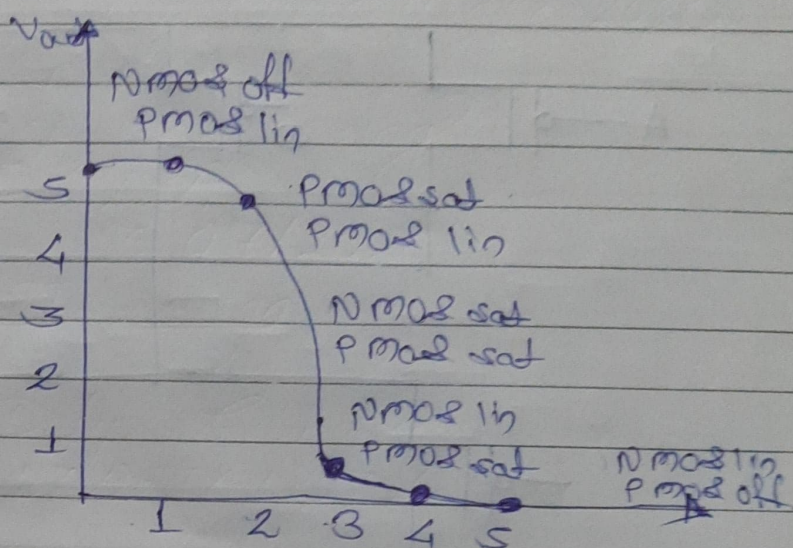 Vout
NMOS off
PMOS lin
5
PMOS sat
PMOS lin
4
3
NMOS sat
PMOS sat
2
NMOS lin
1
PMOS sat
NMOS lin
PMOS off
1 2 3 4 5